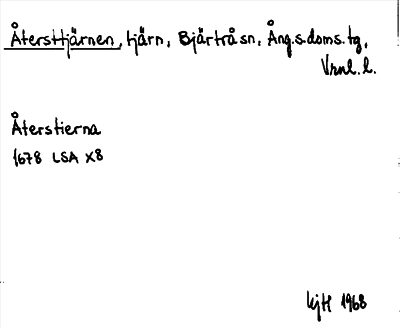 Återsttjärnen, tjärn, Bjärtrå sn, Ång.s.doms.tg,
Vrnl. l.
Återstierna
1678 LSA X8
KjH 1968